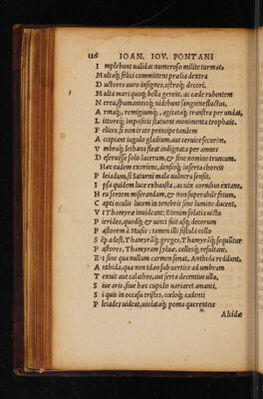 126 IOAN. IOV. PONTANI
I mplebunt ualidas numeroso milite turmas.
M ultaq; felici committent prælia dextra
D uctores auro insignes, ostroq; decori.
M ulta mari quoq; bella gerent, ac cæde rubentem
N erea, spumanteisq; uidebunt sanguine fluctus.
A rmaq;, remigiumq;, agitataq; transtra per undas,
L ittoreq; impositis statuent monimenta trophæis.
F elices, si non irato principe tandem
A ccipiant iugulo gladium, aut ceruice securim.
V mbraq; lethæos fleat indignata per amnes
D eseruisse solo lucerum, & sine nomine truncum.
Hæc eadem exoriens, densisq; inserta choreis
P leiadum, si Saturni mala uulnera sensit,
I psa quidem luce exhausta, ac uix cornibus extans,
H eu sortem miserandam, & non superabile fatum,
C apti oculis lucem in tenebris sine lumine ducent,
V t Thamyræ inuideant: Etenim solatia uicto
P ierides, quodq; & uinci fuit usq; decorum
P astorem à Musis: tamen illi fistula collo
S ẽp adest, Thamyraq; greges, Thamyraq; sequuntur
P astores, Thamyram syluæ, collesq; resultant.
E t sine qua nullum carmen sonat, Anthida reddunt,
A nthida, qua non Idæo sub uertice ad umbram
T exuit aut calathos, aut serta decentius ulla,
S iue aris, siue hæc cupido uariaret amanti.
S i quis in occasu tristes, cœloq; cadenti
P leiades uideat, uiolataq; poma querentes
Alcidæ